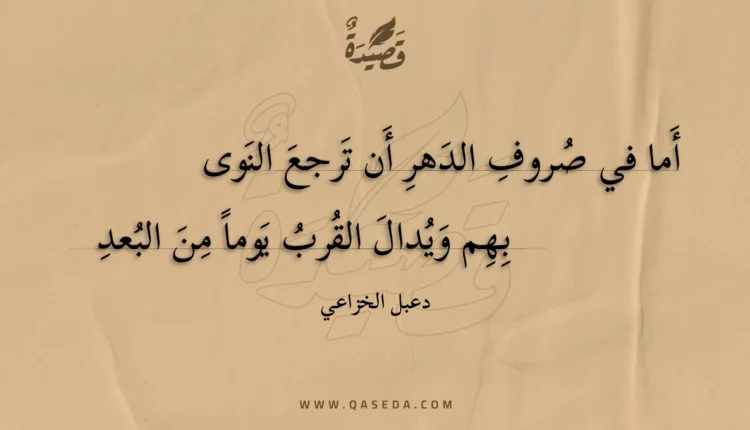 قَصِيْدَةٌ
أَما في صُروفِ الدَهرِ أَن تَرجعَ النَوى
بِهِم وَيُدالَ القُربُ يَوماً مِنَ البُعدِ
دعبل الخزاعي
WWW.QASEDA.COM